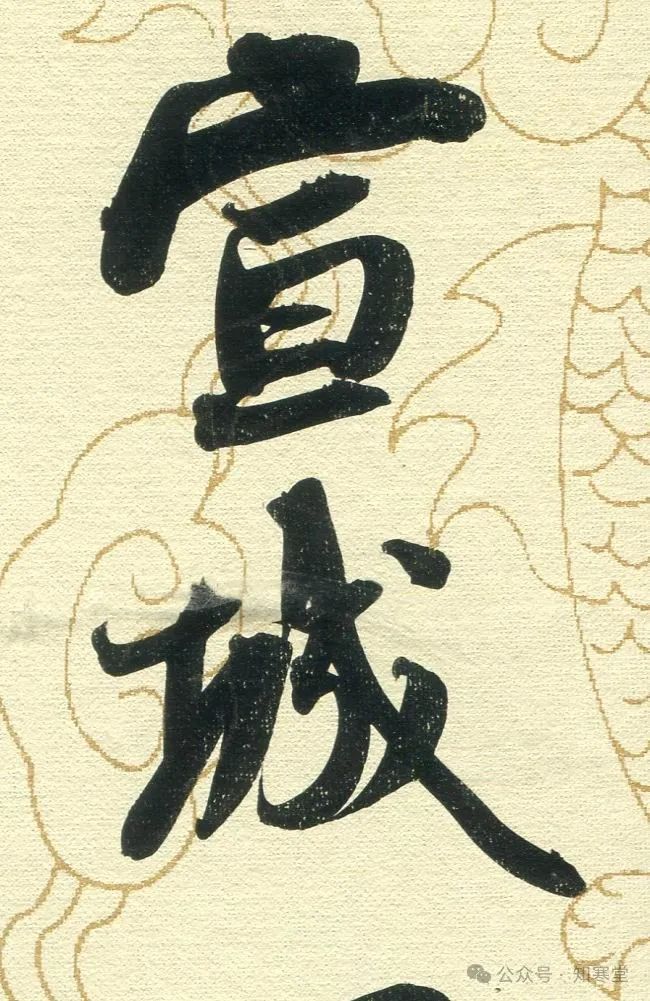 宣城
公众号·知寒堂